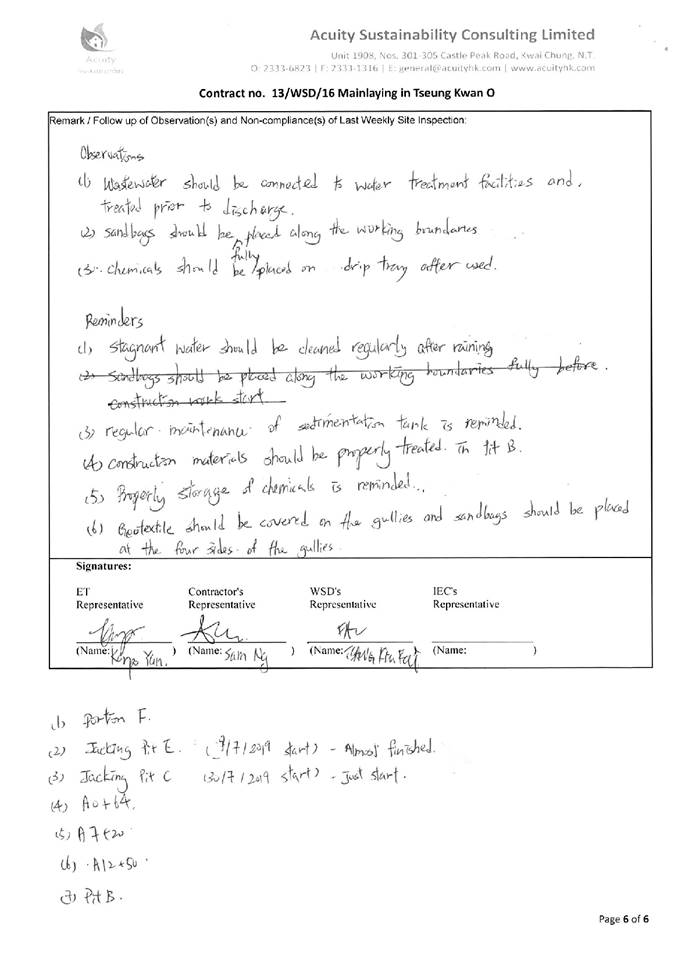 Acuity Sustainability Consulting Limited
Unit 1908, Nos. 301-305 Castle Peak Road, Kwai Chung, N.T.
O: 2333-6823 | F: 2333-1316 | E: general@acuityhk.com | www.acuityhk.com
Acuity
Contract no. 13/WSD/16 Mainlaying in Tseung Kwan O
Remark / Follow up of Observation(s) and Non-compliance(s) of Last Weekly Site Inspection:
Observations
(1) Wastewater should be connected to water treatment facilities and
treated prior to discharge.
(2) Sandbags should be fully placed along the working boundaries
(3) Chemicals should be placed on drip tray after used.
Reminders
(1) Stagnant water should be cleaned regularly after raining
(2) Sandbags should be placed along the working boundaries fully before
construction work start
(3) regular maintenance of sedimentation tank is reminded.
(4) construction materials should be properly treated in Pit B.
(5) Properly storage of chemicals is reminded.
(6) Geotextile should be covered on the gullies and sandbags should be placed
at the four sides of the gullies.
Signatures:
ET Representative
Contractor's Representative
WSD's Representative
IEC's Representative
(Name: Yan. )
(Name: Sam Ng )
(Name:
(Name: )
(1) Portion F.
(2) Jacking Pit E. (9/7/2019 start) - Almost finished.
(3) Jacking Pit C (30/7/2019 start) - Just start.
(4) A0+64.
(5) A7+20
(6) A12+50
(7) Pit B.
Page 6 of 6